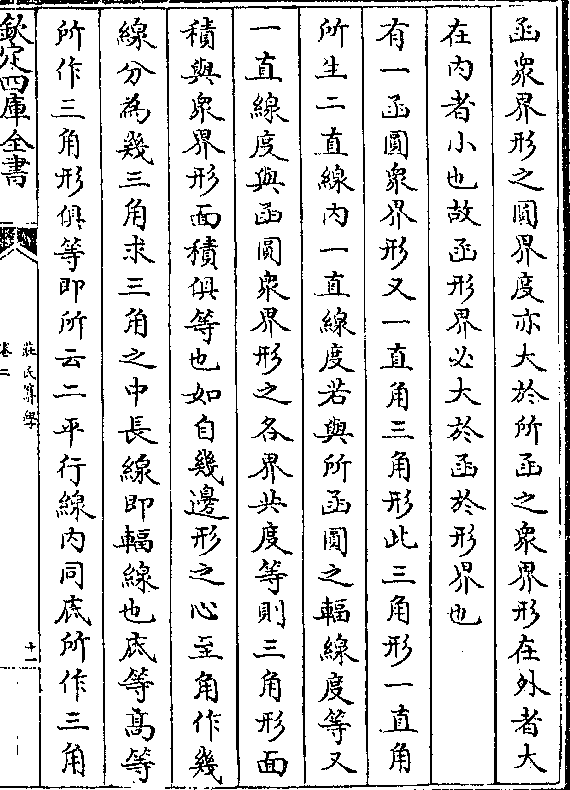 函衆界形之圓界度亦大於所函之衆界形在外者大
在內者小也故函形界必大於函於形界也
有一函圓衆界形又一直角三角形此三角形一直角
所生二直線內一直線度若與所函圓之輻線度等又
一直線度與函圓衆界形之各界共度等則三角形面
積與衆界形面積俱等也如自幾邊形之心至角作幾
線分為幾三角求三角之中長線即輻線也底等髙等
所作三角形俱等即所云二平行線內同底所作三角
欽定四庫全書
莊氏算學
卷二
十二